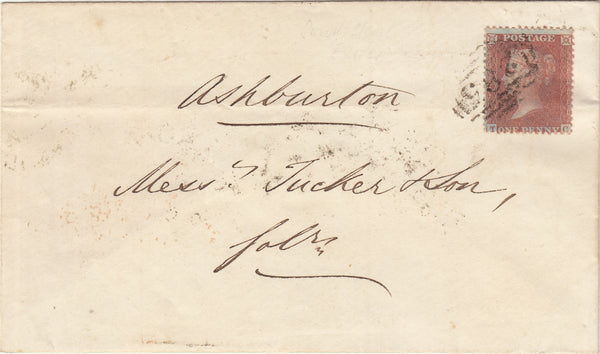 POSTAGE
ONE PENNY
Ashburton
Messrs Tucker & Son,
Solrs